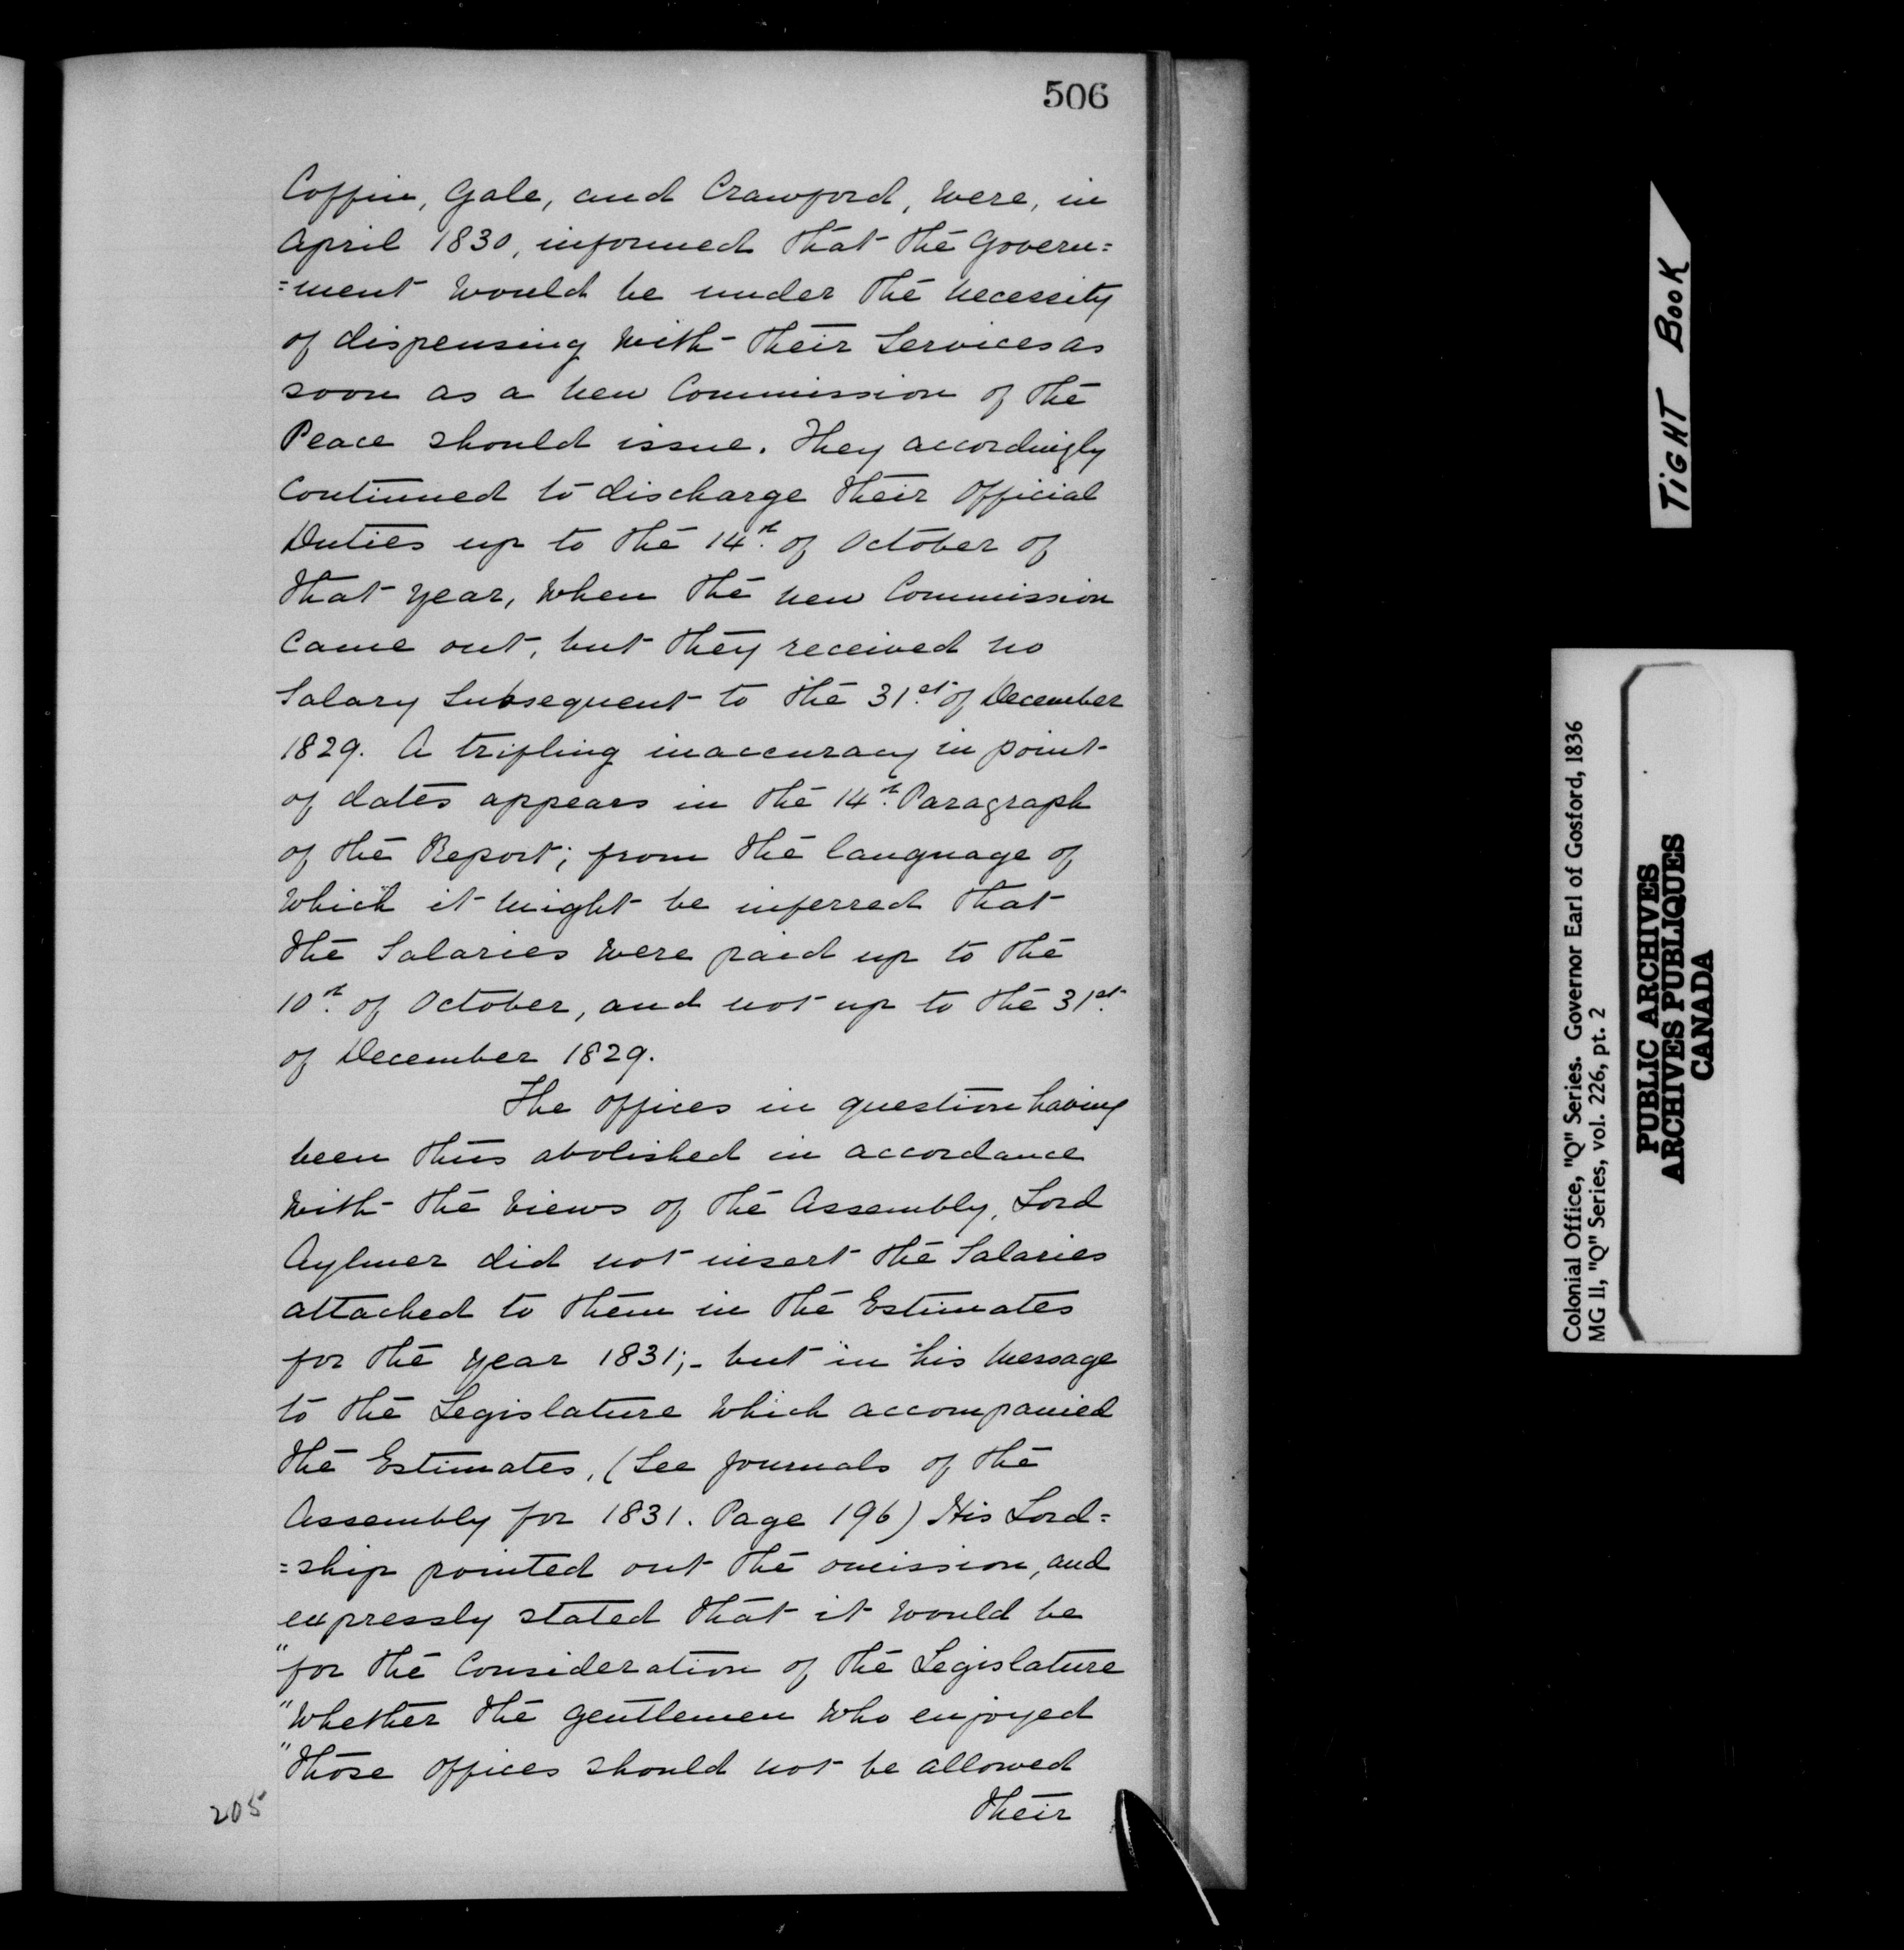 506
Coffin, Gale, and Crawford, were, in
April 1830, informed that the Govern=
=ment would be under the necessity
of dispensing with their Services as
soon as a new Commission of the
Peace should issue. They accordingly
continued to discharge their Official
Duties up to the 14th. of October of
that year, when the new Commission
came out, but they received no
Salary subsequent to the 31st. of December
1829. A trifling inaccuracy in point
of dates appears in the 14th. Paragraph
of the Report; from the language of
which it might be inferred that
the Salaries were paid up to the
10th. of October, and not up to the 31st.
of December 1829.
The offices in question having
been thus abolished in accordance
with the views of the Assembly, Lord
Aylmer did not insert the Salaries
attached to them in the Estimates
for the year 1831;- but in his message
to the Legislature which accompanied
the Estimates, (See Journals of the
Assembly for 1831. Page 196) His Lord=
=ship pointed out the omission, and
expressly stated that it would be
"for the Consideration of the Legislature
"whether the gentlemen who enjoyed
"those offices should not be allowed
their
205
TIGHT BOOK
Colonial Office, "Q" Series. Governor Earl of Gosford, 1836
MG II, "Q" Series, vol. 226, pt. 2
PUBLIC ARCHIVES
ARCHIVES PUBLIQUES
CANADA